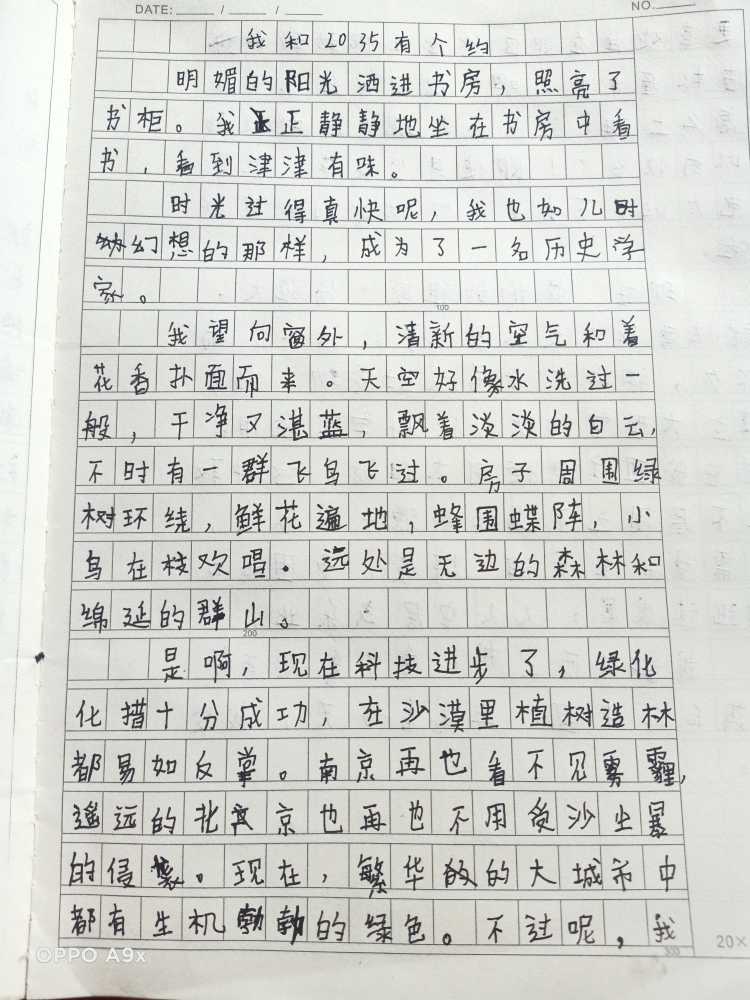 DATE: ___ / ___ / ___ NO.___
我和2035有个约
明媚的阳光洒进书房，照亮了
书柜。我正正静静地坐在书房中看
书，看到津津有味。
时光过得真快呢，我也如儿时
幻想的那样，成为了一名历史学
家。
100
我望向窗外，清新的空气和着
花香扑面而来。天空好像水洗过一
般，干净又湛蓝，飘着淡淡的白云，
不时有一群飞鸟飞过。房子周围绿
树环绕，鲜花遍地，蜂围蝶阵，小
鸟在枝欢唱。远处是无边的森林和
绵延的群山。
200
是啊，现在科技进步了，绿化
化措十分成功，在沙漠里植树造林
都易如反掌。南京再也看不见雾霾，
遥远的北京也再也不用受沙尘暴
的侵袭。现在，繁华的的大城市中
都有生机勃勃的绿色。不过呢，我
20×
OPPO A9x